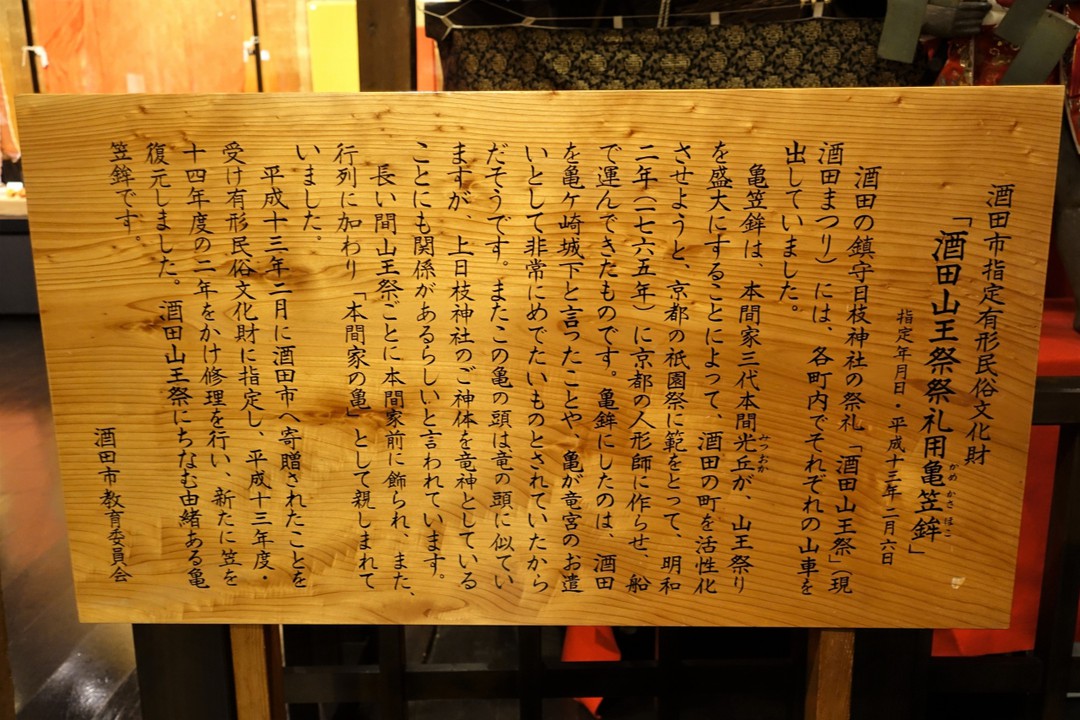 酒田市指定有形民俗文化財
「酒田山王祭祭礼用亀笠鉾」
かめかさほこ
指定年月日・平成十三年二月六日
酒田の鎮守日枝神社の祭礼「酒田山王祭」（現
酒田まつり）には、各町内でそれぞれの山車を
出していました。
亀笠鉾は、本間家三代本間光丘が、山王祭り
みつおか
を盛大にすることによって、酒田の町を活性化
させようと、京都の祇園祭に範をとって、明和
二年（一七六五年）に京都の人形師に作らせ、船
で運んできたものです。亀鉾にしたのは、酒田
を亀ヶ崎城下と言ったことや、亀が竜宮のお遣
いとして非常にめでたいものとされていたから
だそうです。またこの亀の頭は竜の頭に似てい
ますが、上日枝神社のご神体を竜神としている
ことにも関係があるらしいと言われています。
長い間山王祭ごとに本間家前に飾られ、また、
行列に加わり「本間家の亀」として親しまれて
いました。
平成十三年二月に酒田市へ寄贈されたことを
受け有形民俗文化財に指定し、平成十三年度・
十四年度の二年をかけ修理を行い、新たに笠を
復元しました。酒田山王祭にちなむ由緒ある亀
笠鉾です。
酒田市教育委員会